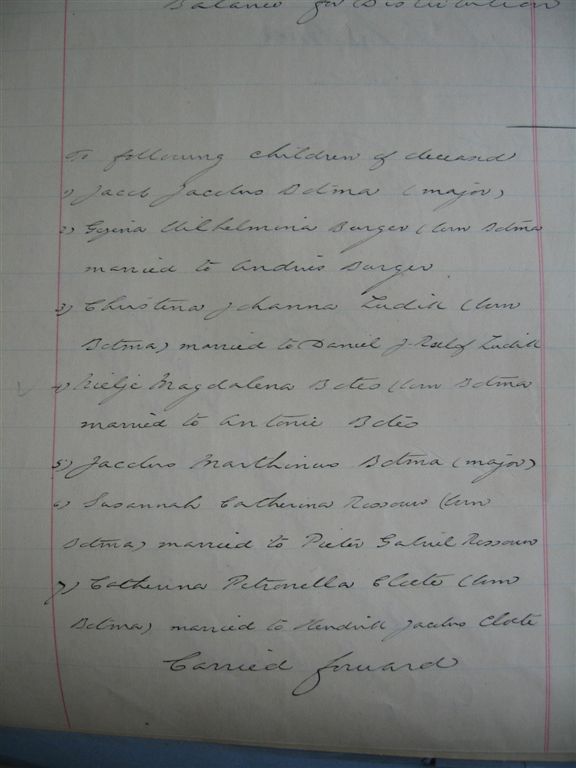 Balance for Distribution
To following children of deceased
1) Jacob Jacobus Botma (major)
2) Gezina Wilhelmina Burger (born Botma
married to Andries Burger
3) Christina Johanna Ludick (born
Botma) married to Daniel J. Roelof Ludick
4) Magdalena Botes (born Botma
married to Antonie Botes
5) Jacobus Marthinus Botma (major)
6) Susannah Catherina Rossouw (born
Botma) married to Pieter Gabriel Rossouw
7) Catherina Petronella Cloete (born
Botma) married to Hendrik Jacobus Cloete
Carried forward